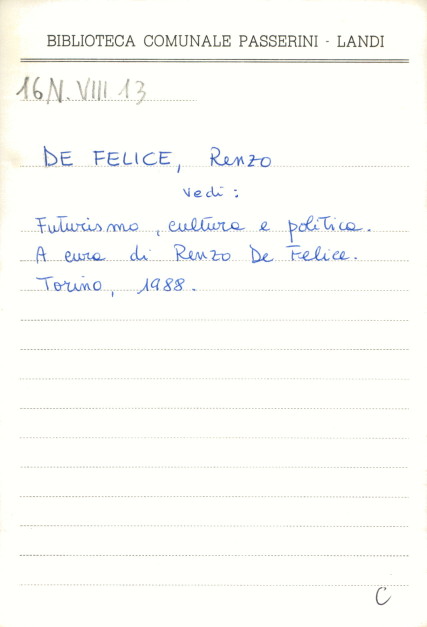 BIBLIOTECA COMUNALE PASSERINI - LANDI
16N. VIII 13
DE FELICE, Renzo
vedi:
Futurismo, cultura e politica.
A cura di Renzo De Felice.
Torino, 1988.
C